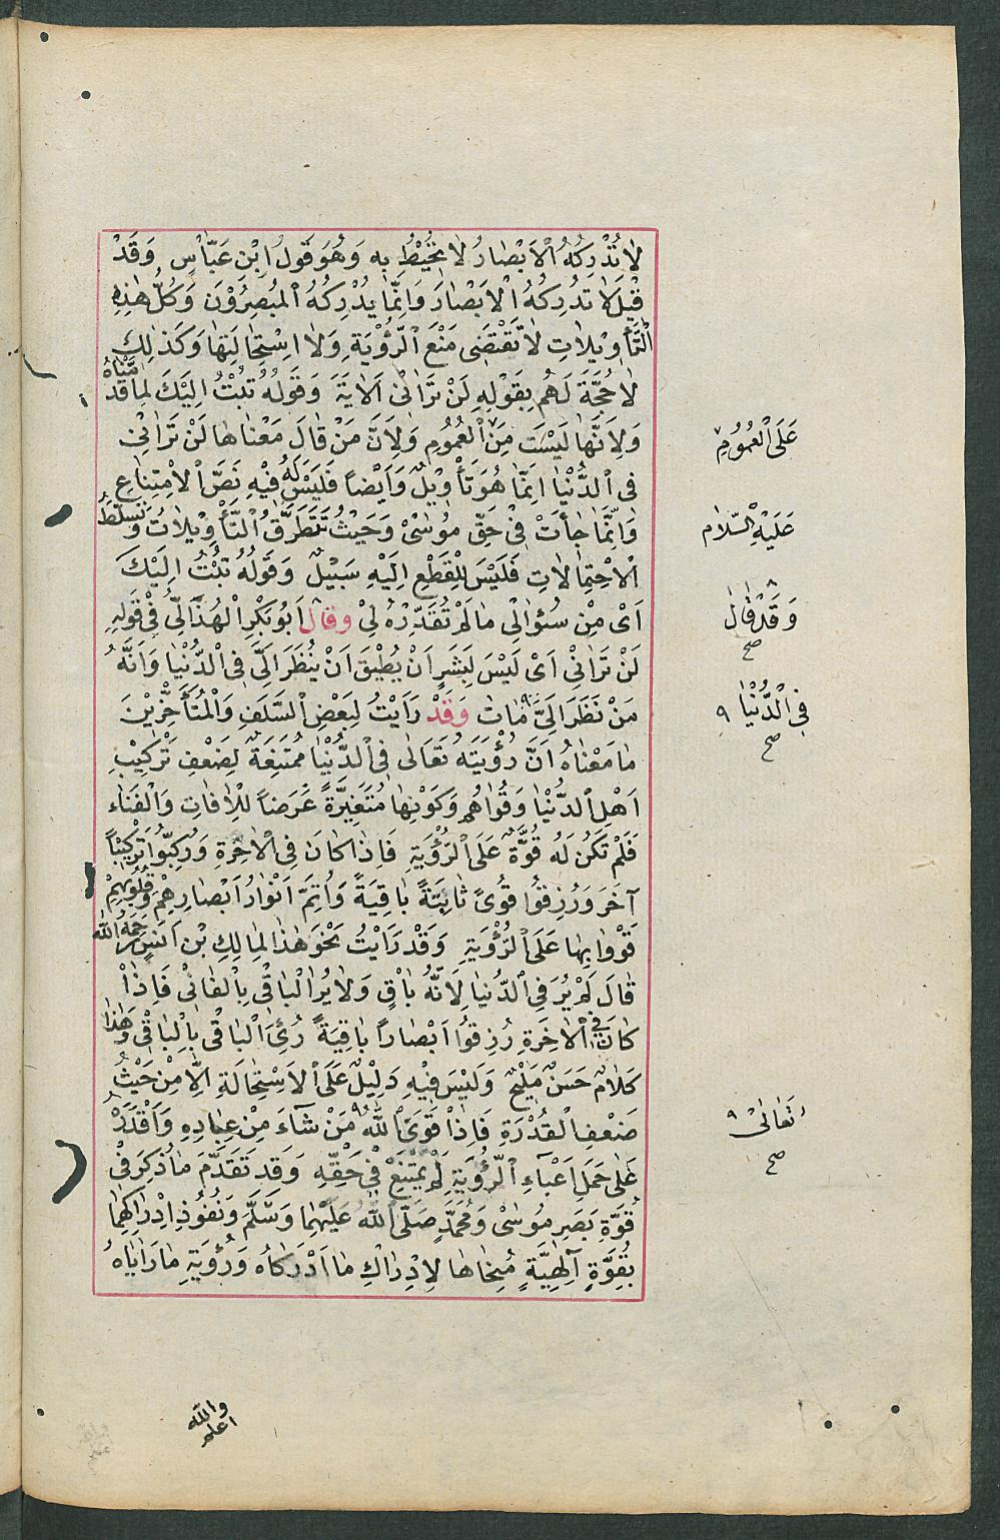 لَا تُدْرِكُهُ الْاَبْصَارُ لَا تُحِيْطُ بِهِ وَهُوَ قَوْلُ ابْنِ عَبَّاسٍ وَقَدْ
قِيْلَ لَا تُدْرِكُهُ الْاَبْصَارُ وَاِنَّمَا يُدْرِكُهُ الْمُبْصِرُوْنَ وَكُلُّ هٰذِهِ
التَّأْوِيْلَاتِ لَا تَقْتَضِى مَنْعَ الرُّؤْيَةِ وَلَا اسْتِحَالَتِهَا وَكَذٰلِكَ
لَا حُجَّةَ لَهُمْ بِقَوْلِهِ لَنْ تَرَانِىْ الْاٰيَةَ وَقَوْلُهُ تُبْتُ اِلَيْكَ لِمَا قَدَّمْنَاهُ
وَلِاَنَّهَا لَيْسَتْ مِنَ الْعُمُوْمِ وَلِاَنَّ مَنْ قَالَ مَعْنَاهَا لَنْ تَرَانِىْ
فِى الدُّنْيَا اِنَّمَا هُوَ تَأْوِيْلٌ وَاَيْضاً فَلَيْسَ لَهُ فِيْهِ نَصُّ الْاِمْتِنَاعِ
وَاِنَّمَا جَاءَتْ فِىْ حَقِّ مُوْسٰىْ وَحَيْثُ تَتَطَرَّقُ التَّأْوِيْلَاتُ وَتَتَسَلَّطُ
الْاِحْتِمَالَاتِ فَلَيْسَ لِلْقَطْعِ اِلَيْهِ سَبِيْلٌ وَقَوْلُهُ تُبْتُ اِلَيْكَ
اَىْ مِنْ سُئْوَالِىْ مَا لَمْ تُقَدِّرْهُ لِىْ وَقَالَ اَبُوْ بَكْرٍ الْهُذَلِىُّ فِىْ قَوْلِهِ
لَنْ تَرَانِىْ اَىْ لَيْسَ لِبَشَرٍ اَنْ يُطِيْقَ اَنْ يَنْظُرَ اِلَىَّ فِى الدُّنْيَا وَاَنَّهُ
مَنْ نَظَرَ اِلَىَّ مَاتَ وَقَدْ رَاَيْتُ لِبَعْضِ السَّلَفِ وَالْمُتَأَخِّرِيْنَ
مَا مَعْنَاهُ اَنَّ رُؤْيَتَهُ تَعَالٰى فِى الدُّنْيَا مُمْتَنِعَةٌ لِضَعْفِ تَرْكِيْبِ
اَهْلِ الدُّنْيَا وَقُوَاهُمْ وَكَوْنِهَا مُتَغَيِّرَةً عَرَضاً لِلْاٰفَاتِ وَالْفَنَاءِ
فَلَمْ تَكُنْ لَهُ قُوَّةٌ عَلَى الرُّؤْيَةِ فَاِذَا كَانَ فِى الْاٰخِرَةِ وَرُكِّبُوْا تَرْكِيْباً
آخَرَ وَرُزِقُوْا قُوًى ثَابِتَةً بَاقِيَةً وَاُتِمَّ اَنْوَارُ اَبْصَارِهِمْ وَقُلُوْبِهِمْ
قَوُوْا بِهَا عَلَى الرُّؤْيَةِ وَقَدْ رَاَيْتُ نَحْوَ هٰذَا لِمَالِكِ بْنِ اَنَسٍ رَحِمَهُ اللّٰهُ
قَالَ لَمْ يُرَ فِى الدُّنْيَا لِاَنَّهُ بَاقٍ وَلَا يُرَا الْبَاقِىْ بِالْفَانِىْ فَاِذَاْ
كَانَ فِى الْاٰخِرَةِ رُزِقُوْا اَبْصَاراً بَاقِيَةً رُئِىَ الْبَاقِىْ بِالْبَاقِىْ وَهٰذَا
كَلَامٌ حَسَنٌ مَلِيْحٌ وَلَيْسَ فِيْهِ دَلِيْلٌ عَلَى الْاِسْتِحَالَةِ اِلَّا مِنْ حَيْثُ
ضَعْفِ الْقُدْرَةِ فَاِذَاْ قَوَّى اللّٰهُ مَنْ شَاءَ مِنْ عِبَادِهِ وَاَقْدَرَهُ
عَلٰى حَمْلِ اَعْبَاءِ الرُّؤْيَةِ لَمْ يَمْتَنِعْ فِىْ حَقِّهِ وَقَدْ تَقَدَّمَ مَا ذُكِرَ فِىْ
قُوَّةِ بَصَرِ مُوْسٰىْ وَمُحَمَّدٍ صَلَّى اللّٰهُ عَلَيْهِمَا وَسَلَّمَ وَنُفُوْذِ اِدْرَاكِهِمَا
بِقُوَّةٍ آلِهِيَّةٍ مُنِحَاهَا لِاِدْرَاكِ مَا اَدْرَكَاهُ وَرُؤْيَةِ مَا رَاَيَاهُ
عَلَى الْعُمُوْمِ
عَلَيْهِ السَّلَام
وَقَدْ قَالَ
صح
فِى الدُّنْيَا
صح
تَعَالٰىْ
صح
والله
اعلم